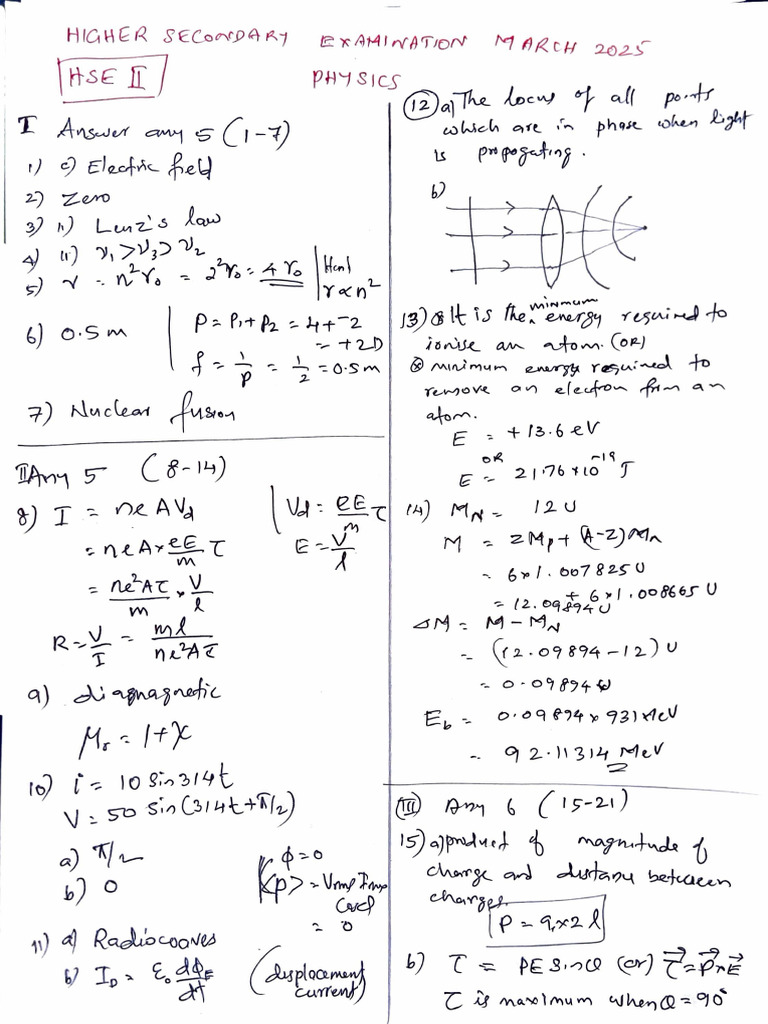 HIGHER SECONDARY EXAMINATION MARCH 2025
HSE II
PHYSICS
I Answer any 5 (1-7)
1) c) Electric field
2) Zero
3) ii) Lenz's law
4) (ii) ν₁ > ν₃ > ν₂
5) r = n²r₀ = 2²r₀ = 4r₀
r ∝ n²
6) 0.5m
P = P₁ + P₂ = 4 + -2
= +2D
f = 1/P = 1/2 = 0.5m
7) Nuclear fusion
II Any 5 (8-14)
8) I = neAVd
= neA × eE/m τ
= ne²Aτ/m × V/l
R = V/I = ml/ne²Aτ
Vd = eE/m τ
E = V/l
9) diagmagnetic
μr = 1+χ
10) i = 10 sin 314t
V = 50 sin (314t + π/2)
a) π/2
b) 0
φ = 0
<P> = Vrms Irms
= 0
11) a) Radiowaves
b) I_D = ε₀ dφ_E/dt (displacement
current)
12) a) The locus of all points
which are in phase when light
is propogating.
b)
13) It is the minmum energy required to
ionise an atom. (OR)
minimum energy required to
remove an electron from an
atom.
E = +13.6 eV
OR
E = 21.76×10⁻¹⁹ J
14) M_N = 12U
M = ZMp + (A-Z)Mn
= 6×1.007825U
+ 6×1.008665U
= 12.09894U
ΔM = M - M_N
= (12.09894-12)U
= 0.09894U
E_b = 0.09894 × 931 MeV
= 92.11314 MeV
III Any 6 (15-21)
15) a) product of magnitude of
charge and distance between
charges.
P = q × 2l
b) τ = PE sinθ (or) τ⃗ = P⃗×E⃗
τ is maximum when θ = 90°